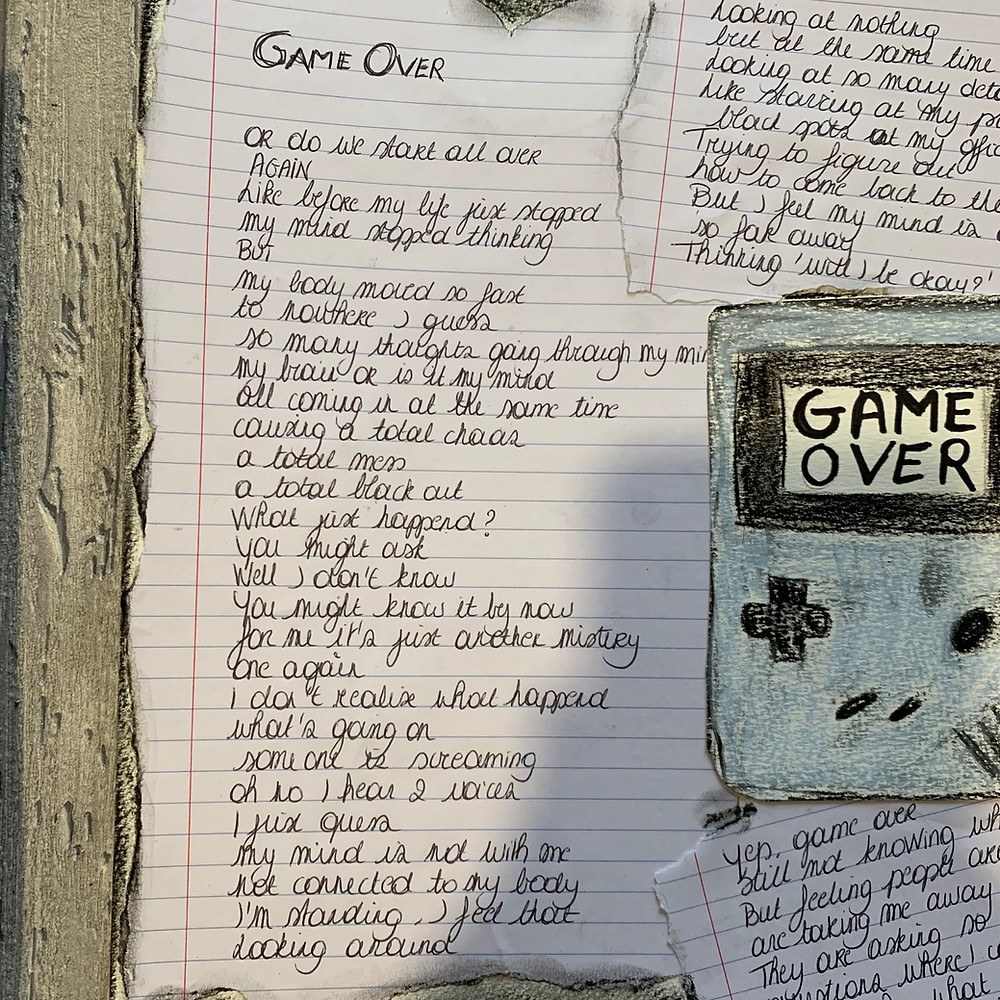 GAME OVER
OR do we start all over
AGAIN
Like before my life just stopped
my mind stopped thinking
BUT
my body moved so fast
to nowhere I guess
so many thoughts going through my min
my brain or is it my mind
all coming in at the same time
causing a total chaos
a total mess
a total black out
What just happend?
You might ask
Well I don't know
You might know it by now
for me it's just another mistery
one again
I don't realize what happend
what's going on
someone is screaming
oh no I hear 2 voices
I just guess
My mind is not with me
not connected to my body
I'm standing, I feel that
Looking around
Looking at nothing
but at the same time
Looking at so many deta
Like starring at my pa
black spots at my offic
Trying to figure out
how to come back to the
But I feel my mind is
so far away
Thinking 'will I be okay?'
GAME
OVER
Yep, game over
Still not knowing wh
But feeling people are
are taking me away
They are asking so
questions where I c
what